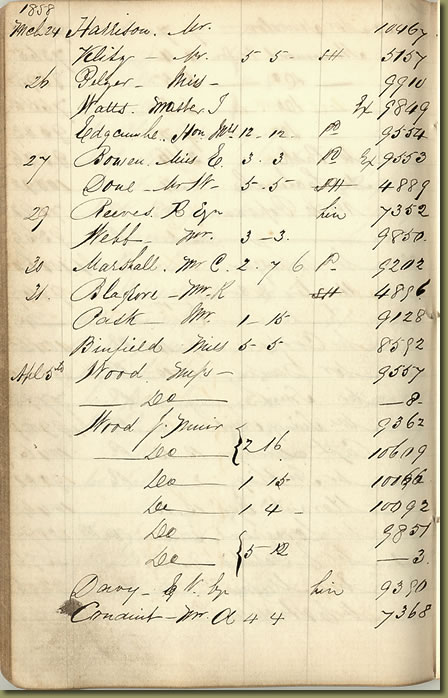 1858
Mch 24 Harrison. Mr. 10467
Mr. 5 5 SH 5157
26 Pelzer Miss 9910
Watts. Master J Ex 9849
Edgcumbe. Hon Mrs 12 - 12 - P 9554
27 Bowen. Miss E. 3 . 3 P Ex 9553
Done - Mr W - 5 - 5 SH 4889
29 Reeves. R Esq 7352
Webb - Mr. 3 - 3. 9850
30 Marshall. Mr C. 2 . 7 6 P 9202
31 Blagrove - Mr. K SH 4896
Pask - Mr 1 - 15 9128
Binfield Miss 5 - 5 8592
Apl 5th Wood. Miss - 9557
Do - 8
Wood J. Muir 9362
Do { 2 16 10619
Do 1 15 10166
Do 1 4 - 10092
Do 9851
Do { 5 12 - 3
Davy - E W. Esq 9390
Conduit - Mr. A 4 4 7368